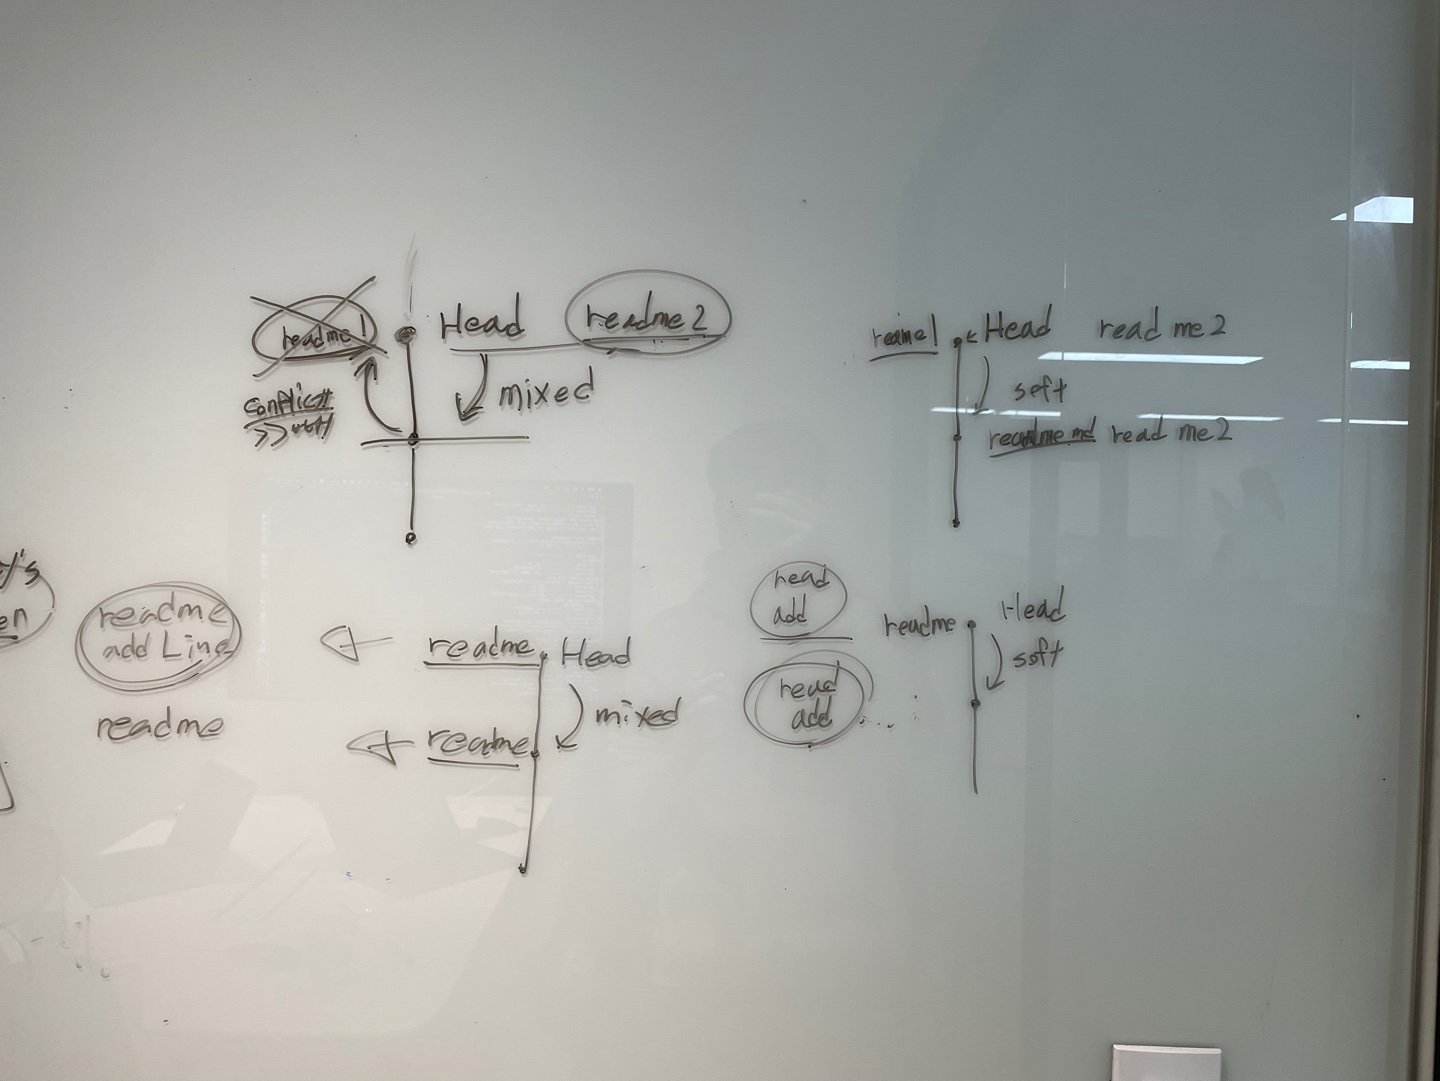 readme1
Head
readme2
mixed
conflict
Head
read me2
soft
readme.md read me2
readme
add Line
readme
readme Head
mixed
readme
read
add
read
add
readme
Head
soft